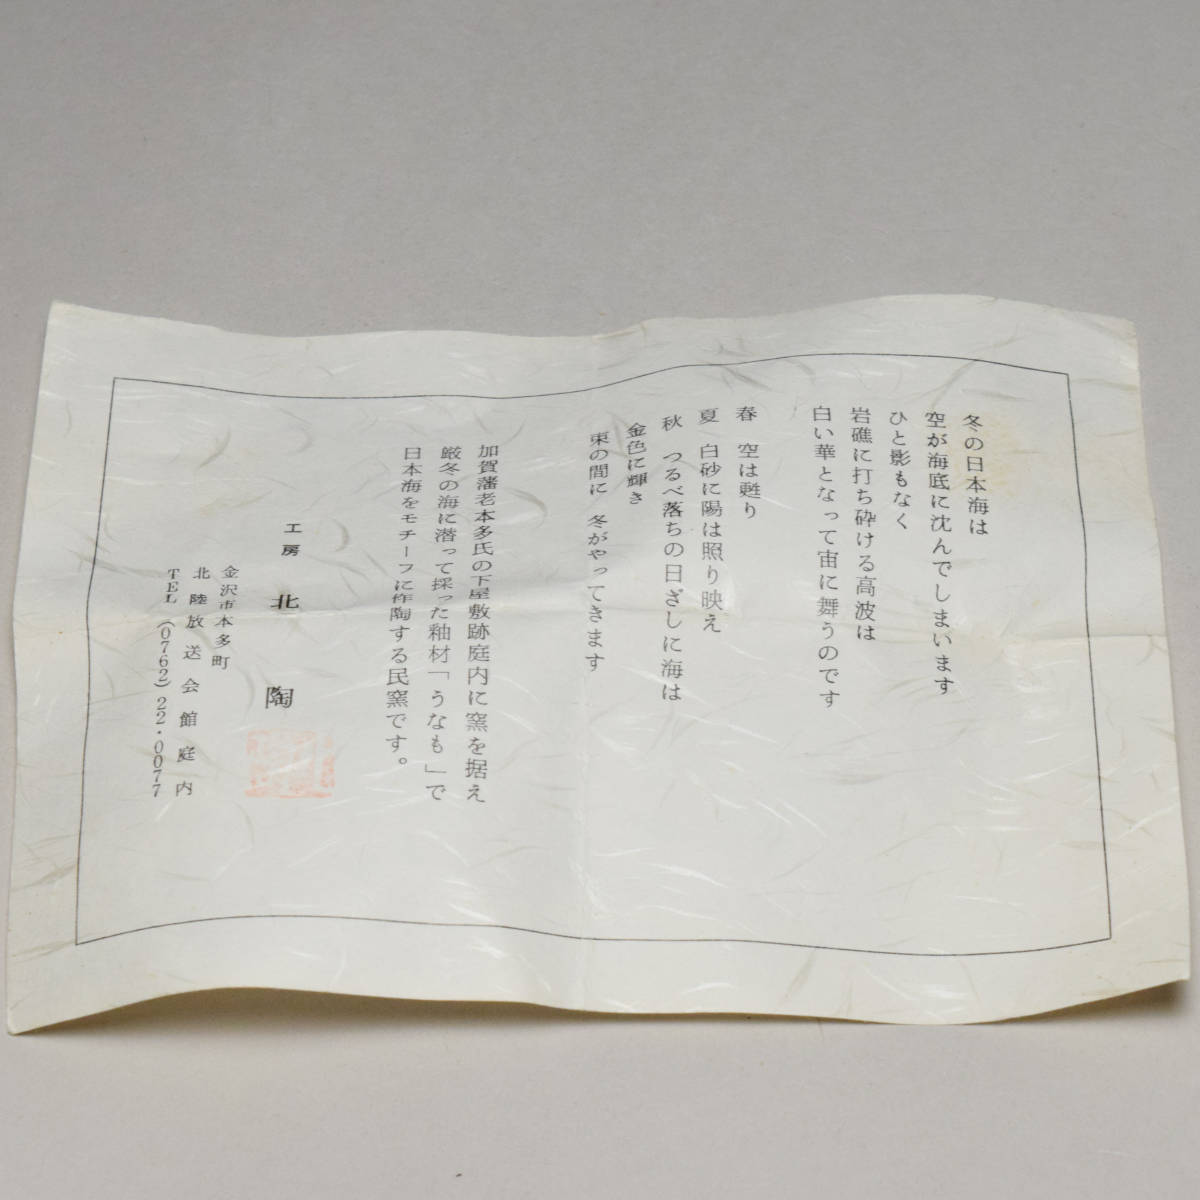 冬の日本海は
空が海底に沈んでしまいます
ひと影もなく
岩礁に打ち砕ける高波は
白い華となって宙に舞うのです
春　空は甦り
夏　白砂に陽は照り映え
秋　つるべ落ちの日ざしに海は
金色に輝き
束の間に　冬がやってきます
加賀藩老本多氏の下屋敷跡庭内に窯を据え
厳冬の海に潜って採った釉材「うなも」で
日本海をモチーフに作陶する民窯です。
工房　北陶
金沢市本多町
北陸放送会館庭内
TEL（0762）22・0077